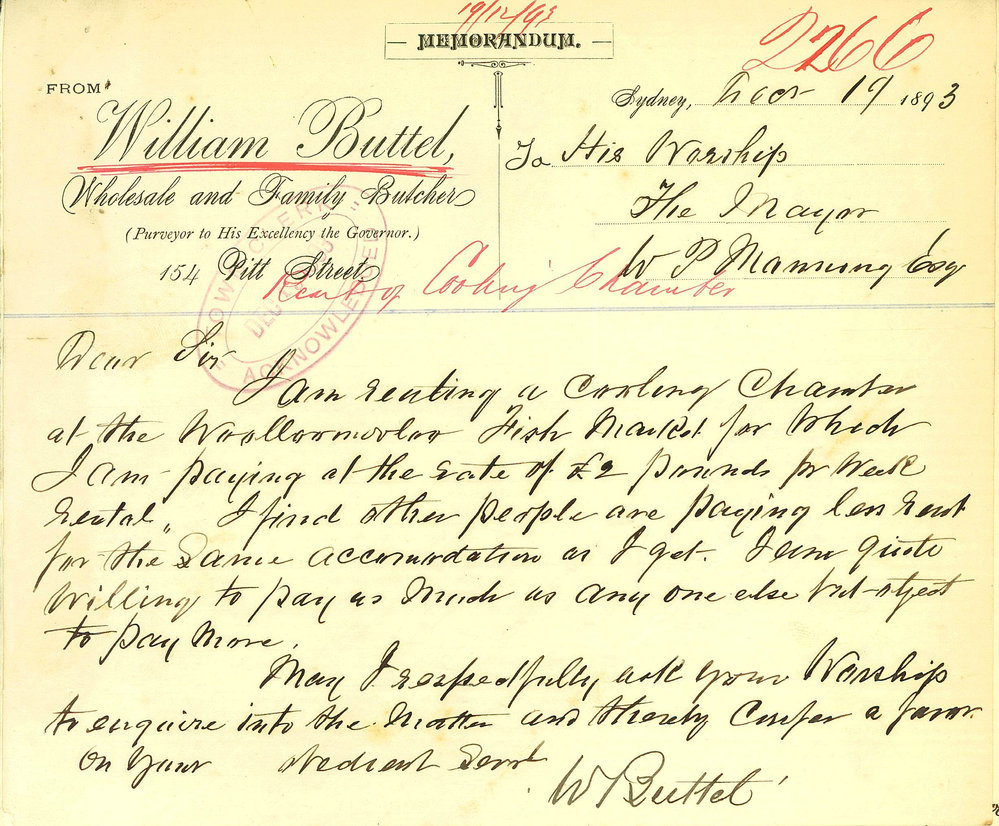 19/12/93
MEMORANDUM.
2266
FROM
William Buttel,
Wholesale and Family Butcher
(Purveyor to His Excellency the Governor.)
154 Pitt Street
Sydney, Decr 19 1893
To His Worship
The Mayor
W P Manning Esq
Rent of Cooling Chamber
TOWN CLERK
DEC
ACKNOWLEDGED
Dear Sir
I am renting a Cooling Chamber
at the Woolloomooloo Fish Market for which
I am paying at the rate of £2 pounds pr Week
rental,, I find other people are paying less rent
for the same accomodation as I get. I am quite
Willing to pay as Much as any one else but object
to pay More.
May I respectfully ask your Worship
to enquire into the Matter and thereby Confer a favor
On Your obedient Servt
W Buttel